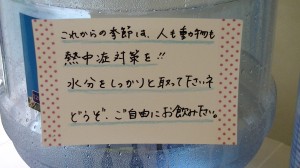 これからの季節は、人も動物も
熱中症対策を!!
水分をしっかりと取って下さいネ
どうぞ、ご自由にお飲み下さい。